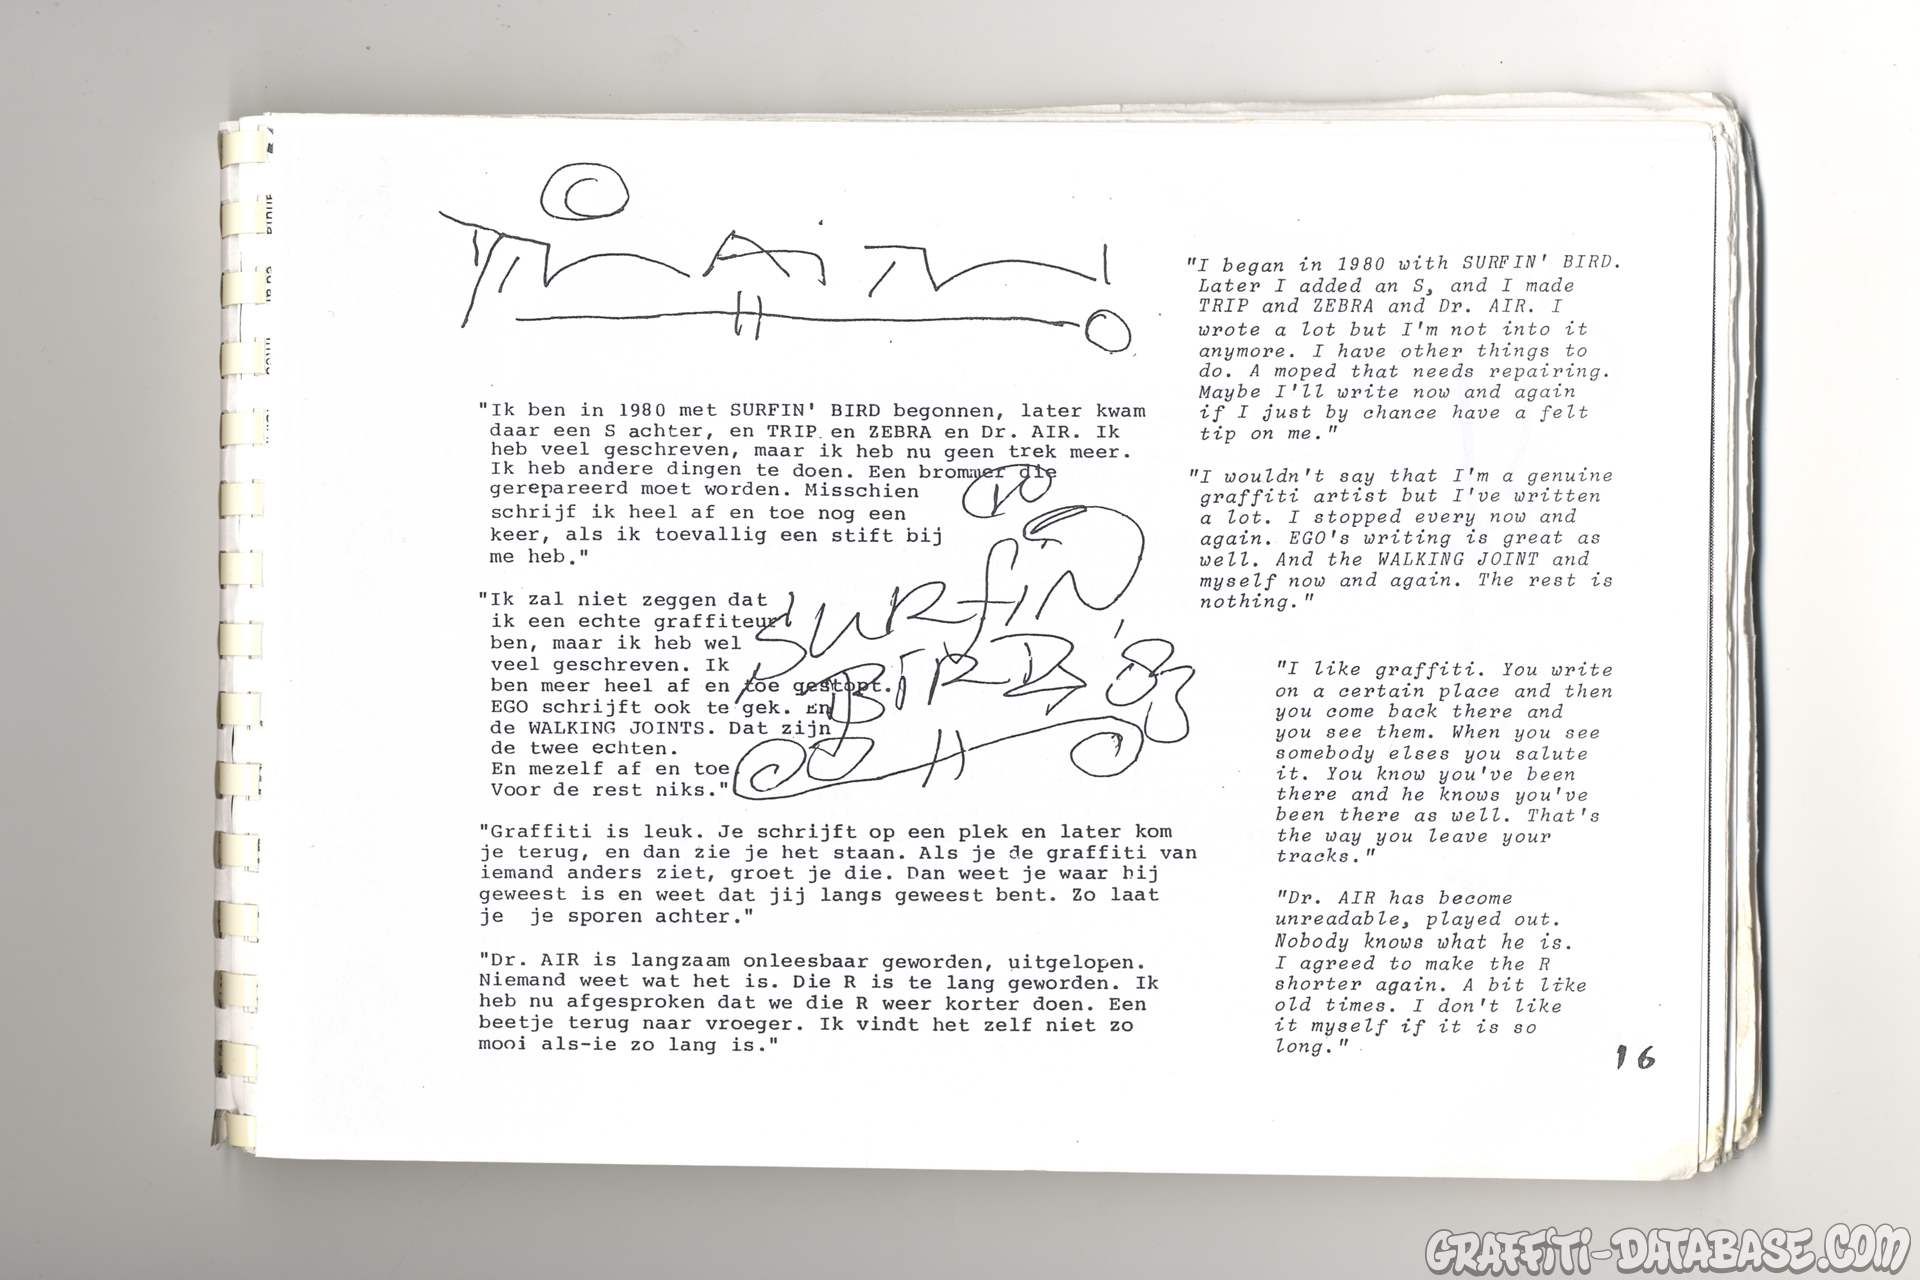 "Ik ben in 1980 met SURFIN' BIRD begonnen, later kwam
daar een S achter, en TRIP en ZEBRA en Dr. AIR. Ik
heb veel geschreven, maar ik heb nu geen trek meer.
Ik heb andere dingen te doen. Een brommer die
gerepareerd moet worden. Misschien
schrijf ik heel af en toe nog een
keer, als ik toevallig een stift bij
me heb."
"Ik zal niet zeggen dat
ik een echte graffiteur
ben, maar ik heb wel
veel geschreven. Ik
ben meer heel af en toe gestopt.
EGO schrijft ook te gek. En
de WALKING JOINTS. Dat zijn
de twee echten.
En mezelf af en toe
Voor de rest niks."
SURFIN
BIRD '83
"Graffiti is leuk. Je schrijft op een plek en later kom
je terug, en dan zie je het staan. Als je de graffiti van
iemand anders ziet, groet je die. Dan weet je waar hij
geweest is en weet dat jij langs geweest bent. Zo laat
je je sporen achter."
"Dr. AIR is langzaam onleesbaar geworden, uitgelopen.
Niemand weet wat het is. Die R is te lang geworden. Ik
heb nu afgesproken dat we die R weer korter doen. Een
beetje terug naar vroeger. Ik vindt het zelf niet zo
mooi als-ie zo lang is."
"I began in 1980 with SURFIN' BIRD.
Later I added an S, and I made
TRIP and ZEBRA and Dr. AIR. I
wrote a lot but I'm not into it
anymore. I have other things to
do. A moped that needs repairing.
Maybe I'll write now and again
if I just by chance have a felt
tip on me."
"I wouldn't say that I'm a genuine
graffiti artist but I've written
a lot. I stopped every now and
again. EGO's writing is great as
well. And the WALKING JOINT and
myself now and again. The rest is
nothing."
"I like graffiti. You write
on a certain place and then
you come back there and
you see them. When you see
somebody elses you salute
it. You know you've been
there and he knows you've
been there as well. That's
the way you leave your
tracks."
"Dr. AIR has become
unreadable, played out.
Nobody knows what he is.
I agreed to make the R
shorter again. A bit like
old times. I don't like
it myself if it is so
long."
16
GRAFFITI-DATABASE.COM